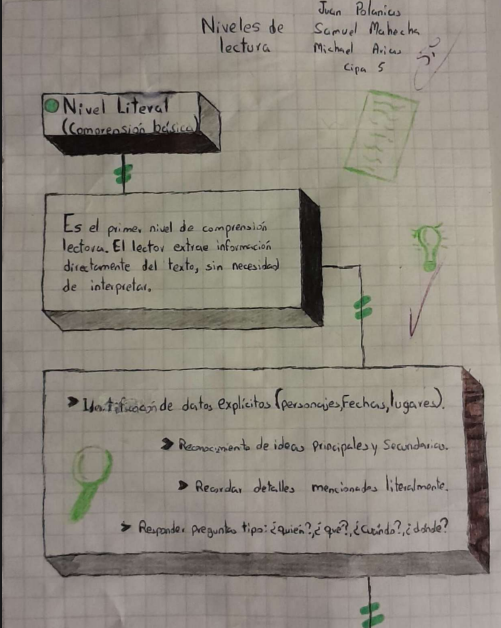 Niveles de
lectura
Juan Polanías
Samuel Mahecha
Michael Arias
Cipa 5
Nivel Literal
(Comprensión básica)
Es el primer nivel de comprensión
lectora. El lector extrae información
directamente del texto, sin necesidad
de interpretar.
➤ Identificación de datos explícitos (personajes, Fechas, lugares).
➤ Reconocimiento de ideas principales y Secundarias.
➤ Recordar detalles mencionados literalmente.
➤ Responder preguntas tipo: ¿quién?, ¿qué?, ¿cuándo?, ¿dónde?